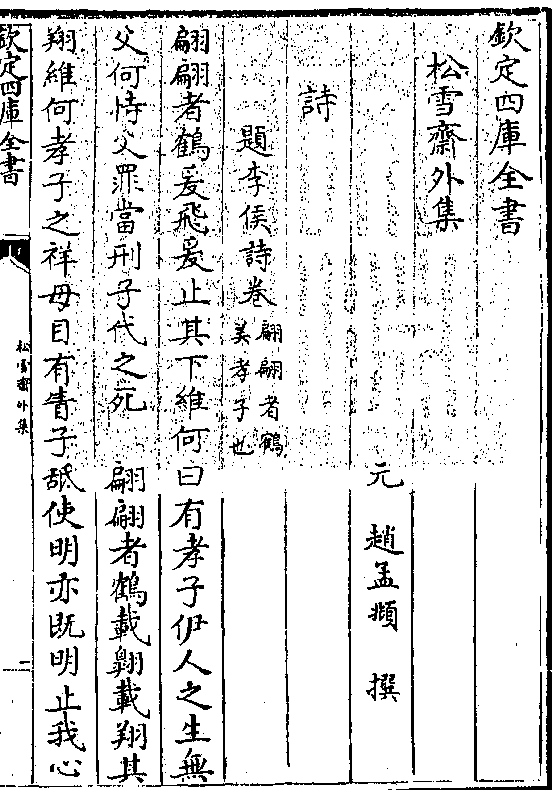 欽定四庫全書
松雪齋外集
元 趙孟頫 撰
詩
題李侯詩卷 翩翩者鶴
美孝子也
翩翩者鶴爰飛爰止其下維何曰有孝子伊人之生無
父何恃父罪當刑子代之死 翩翩者鶴載翺載翔其
翔維何孝子之祥母目有眚子䑛使明亦既明止我心
欽定四庫全書
松雪齋外集
一